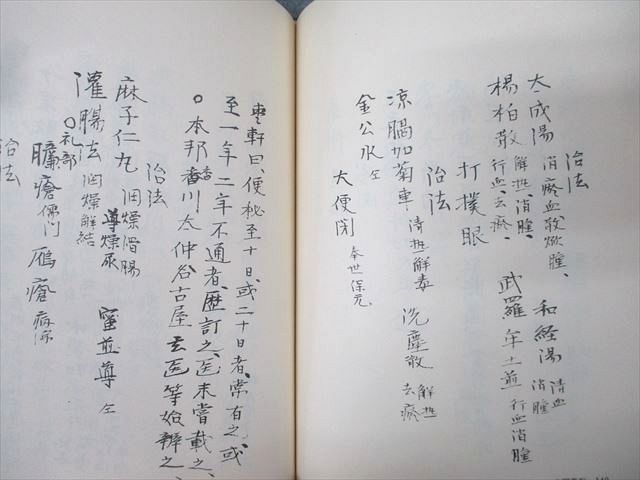 治法
大成湯 消瘀血散焮腫、 和経湯 清血消腫
楊柏散 解熱、消腫、行血、去瘀、 武羅牟土煎 行血消腫
打撲眼
治法
凉膈加菊車 清熱解毒 洗塵散 解熱去瘀
金公水 仝
大便閉 奉世保元
軒曰、便秘至十日、或二十日者、常有之、或
至一年二年不通者、歴訂之、医未嘗載之、
○本邦香川太仲谷古屋玄医等始辨之、
治法
麻子仁丸 潤燥滑腸 蜜煎導 仝
灌腸法 潤燥解結 導燥尿
○礼部
臁瘡 雁瘡
治法
140